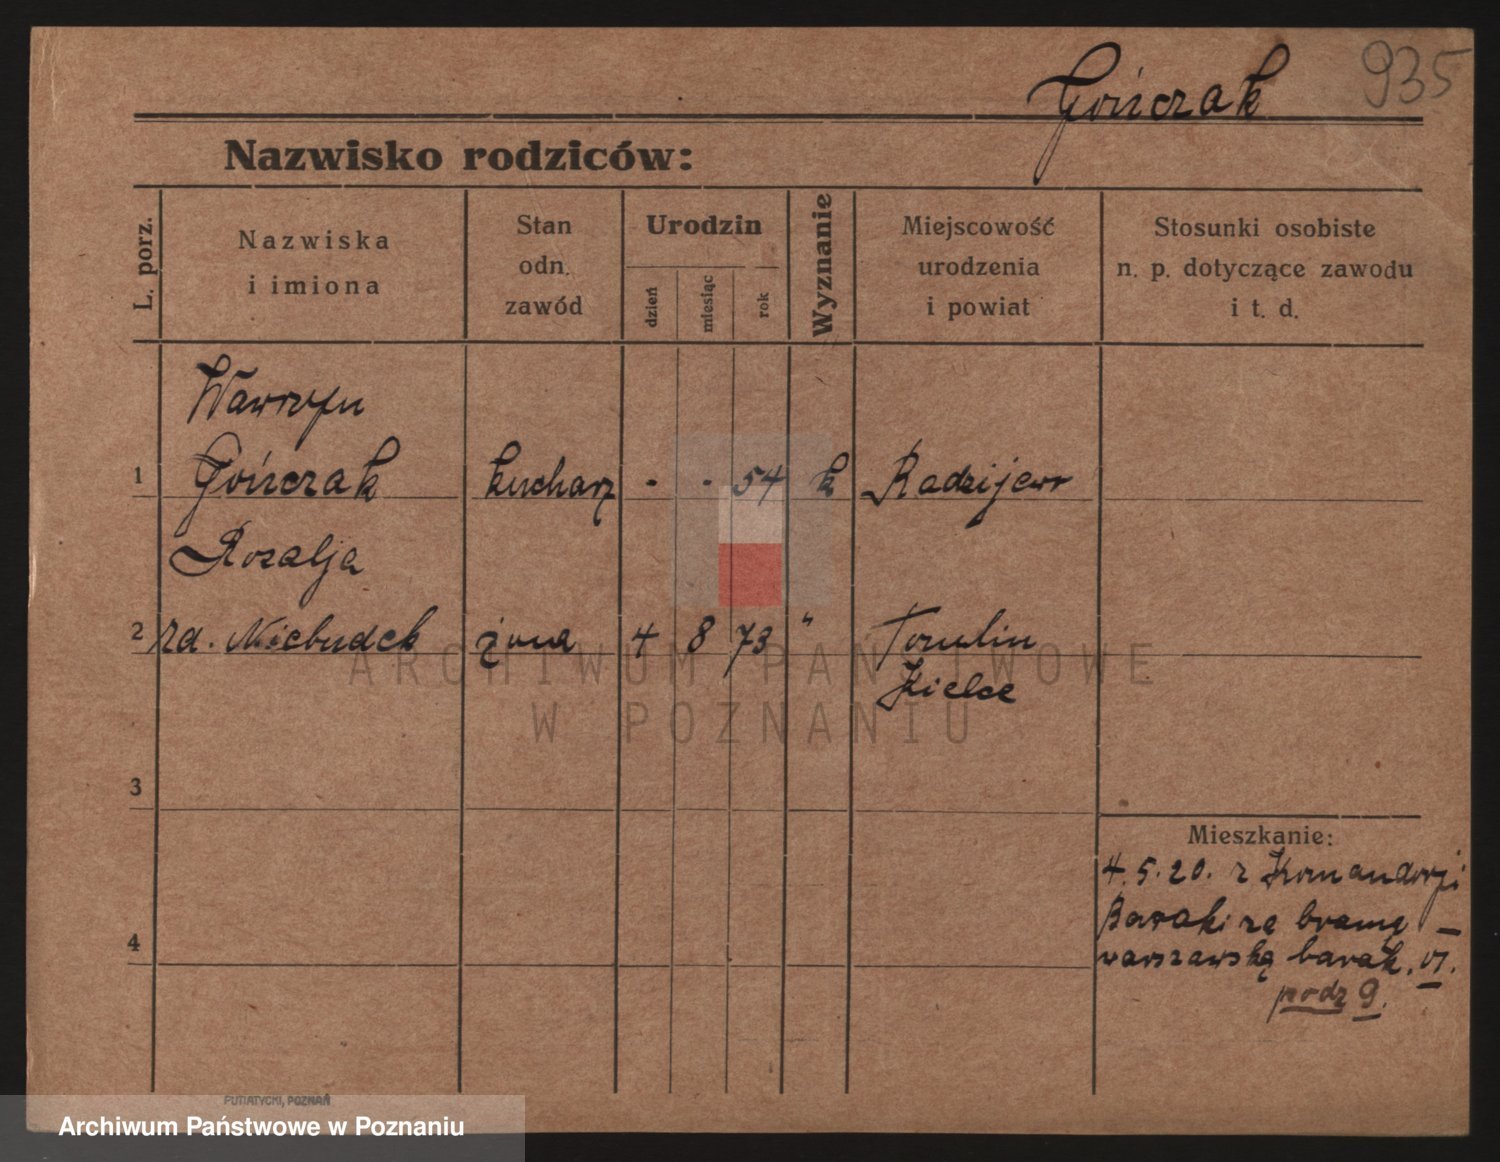 Gończak 935
Nazwisko rodziców:
L. porz.
Nazwiska
i imiona
Stan
odn.
zawód
Urodzin
dzień
miesiąc
rok
Wyznanie
Miejscowość
urodzenia
i powiat
Stosunki osobiste
n. p. dotyczące zawodu
i t. d.
Wawrzyn
1 Gończak kucharz - - 54 k Radzijew
Rozalja
2 rd. Niebudek żona 4 8 73 " Tomlin
Kielce
ARCHIWUM PAŃSTWOWE
W POZNANIU
3
Mieszkanie:
4.5.20. z Komandorji
Baraki za bramą
4 warszawską barak. VI.
podz 9.
PUTIATYCKI, POZNAŃ
Archiwum Państwowe w Poznaniu